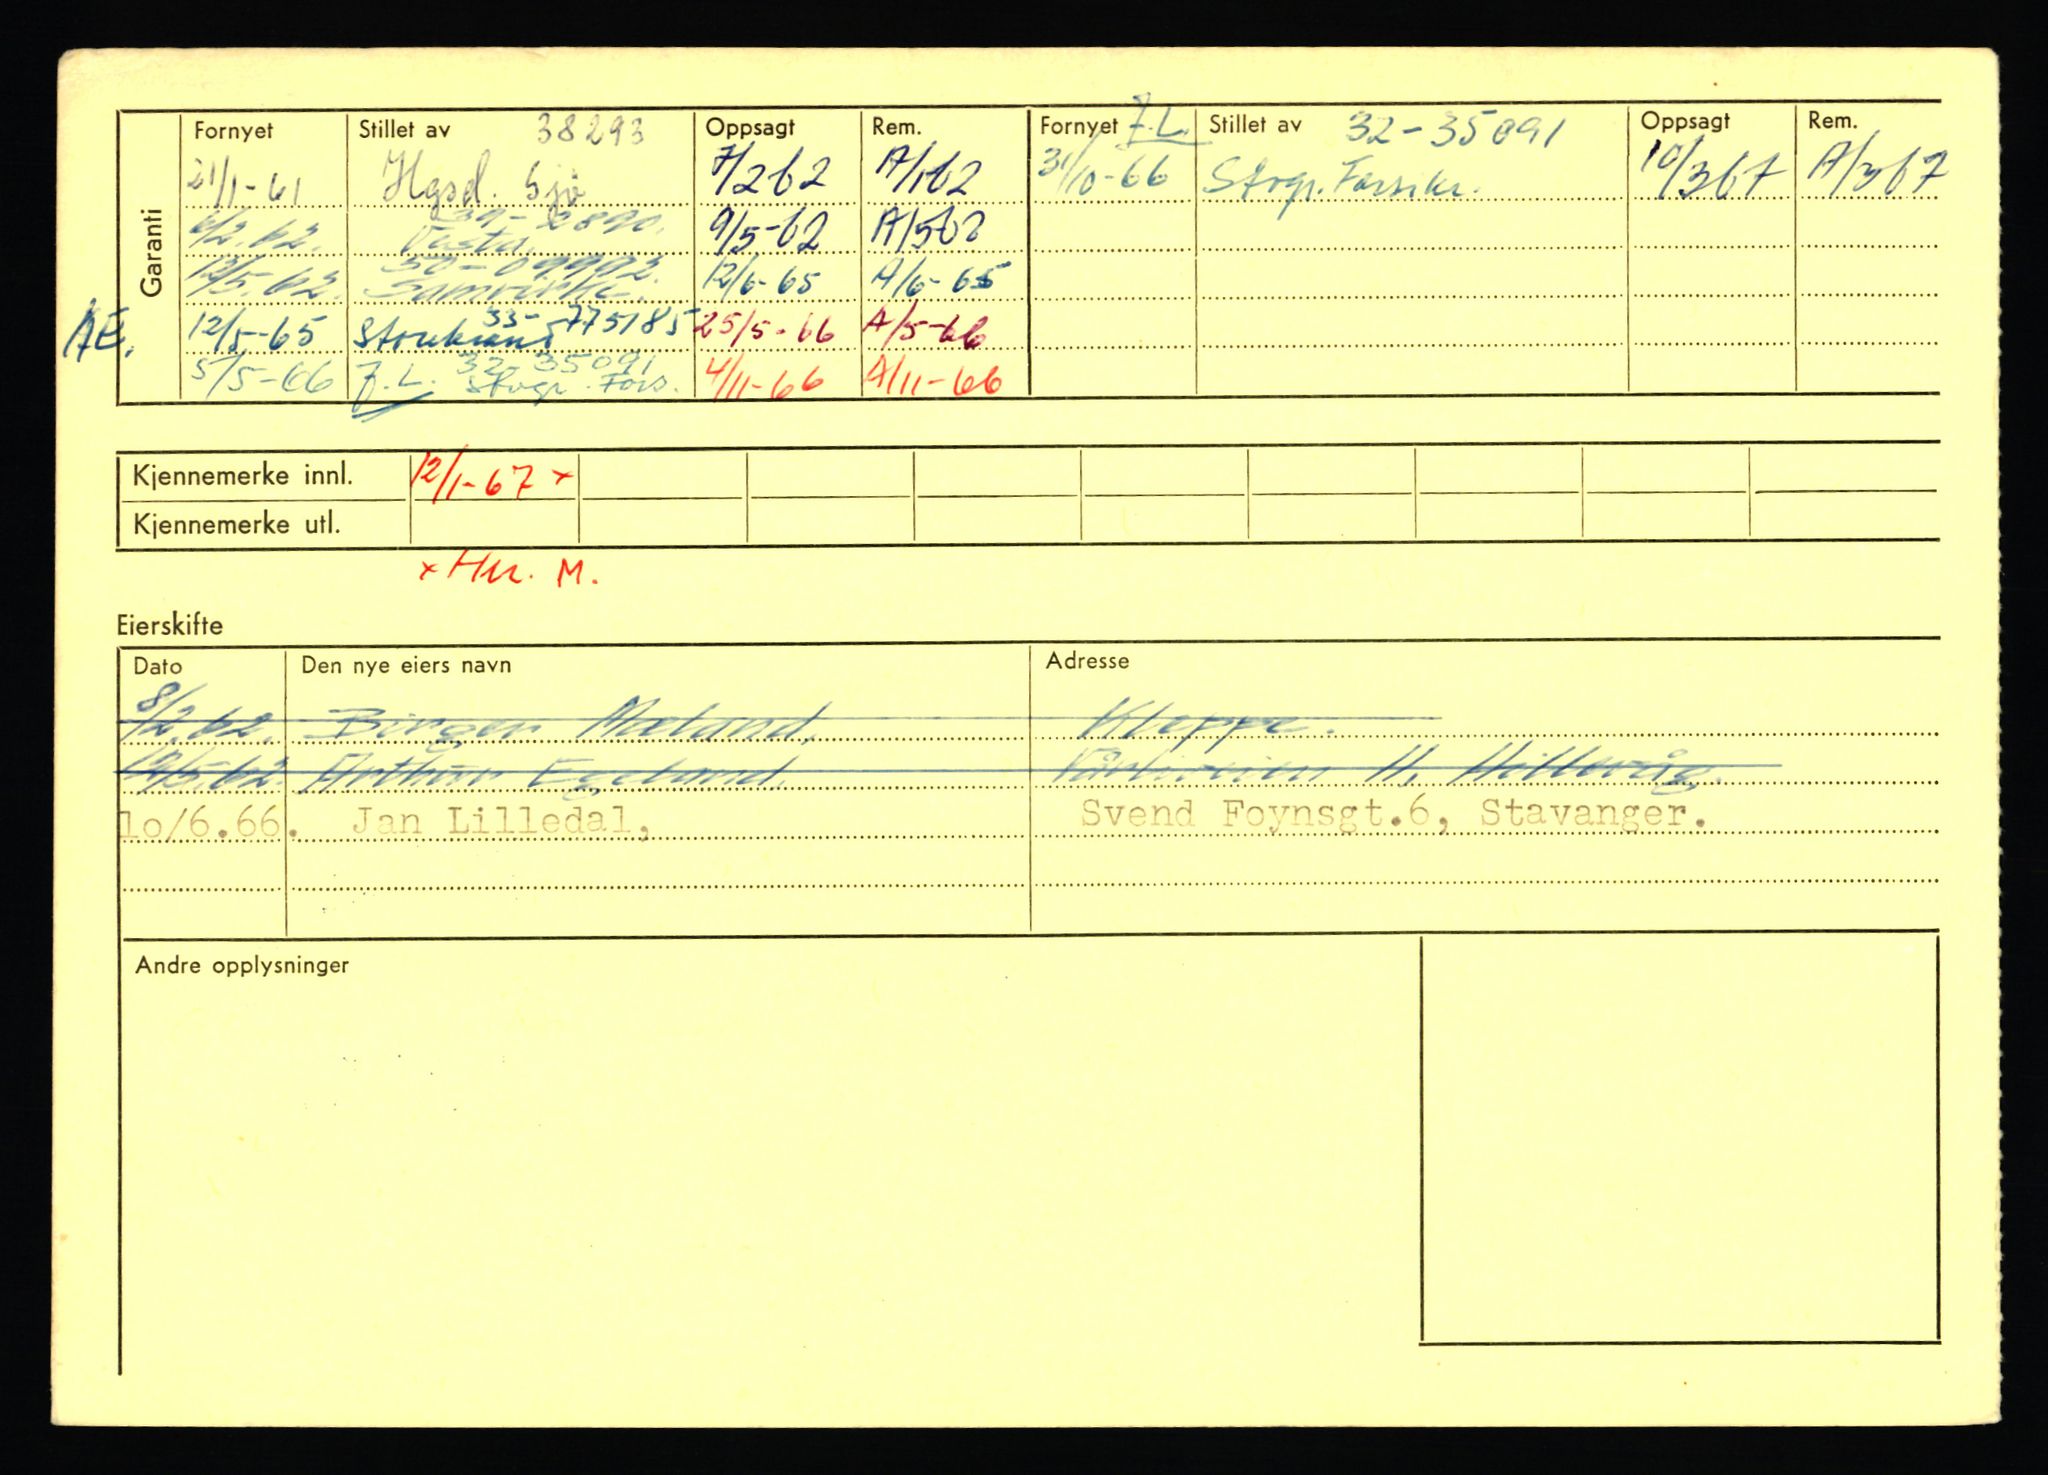 Fornyet Stillet av 38293 Oppsagt Rem. Fornyet J.L. Stillet av 32-35091 Oppsagt Rem.
Garanti
21/1-61 Hgsd. Sjø 7/2 62 A/1 62 31/10-66 Stvgr. Forsikr. 10/3 67 A/3 67
39-2890.
6/2.62. Vesta. 9/5-62 A/5 62
30-09992.
12/5.62. Samvirke. 12/6-65 A/6-65
33-775185
AE. 12/5-65 Storebrand 25/5-66 A/5-66
32-35091
5/5-66 J.L. Stvgr. Fors. 4/11-66 A/11-66
Kjennemerke innl. 12/1-67 x
Kjennemerke utl.
x Hnr. M.
Eierskifte
Dato Den nye eiers navn Adresse
8/2.62. Birger Mæland, Kleppe.
Arthur Egeland. 11, Hillevåg.
1o/6.66. Jan Lilledal, Svend Foynsgt.6, Stavanger.
Andre opplysninger